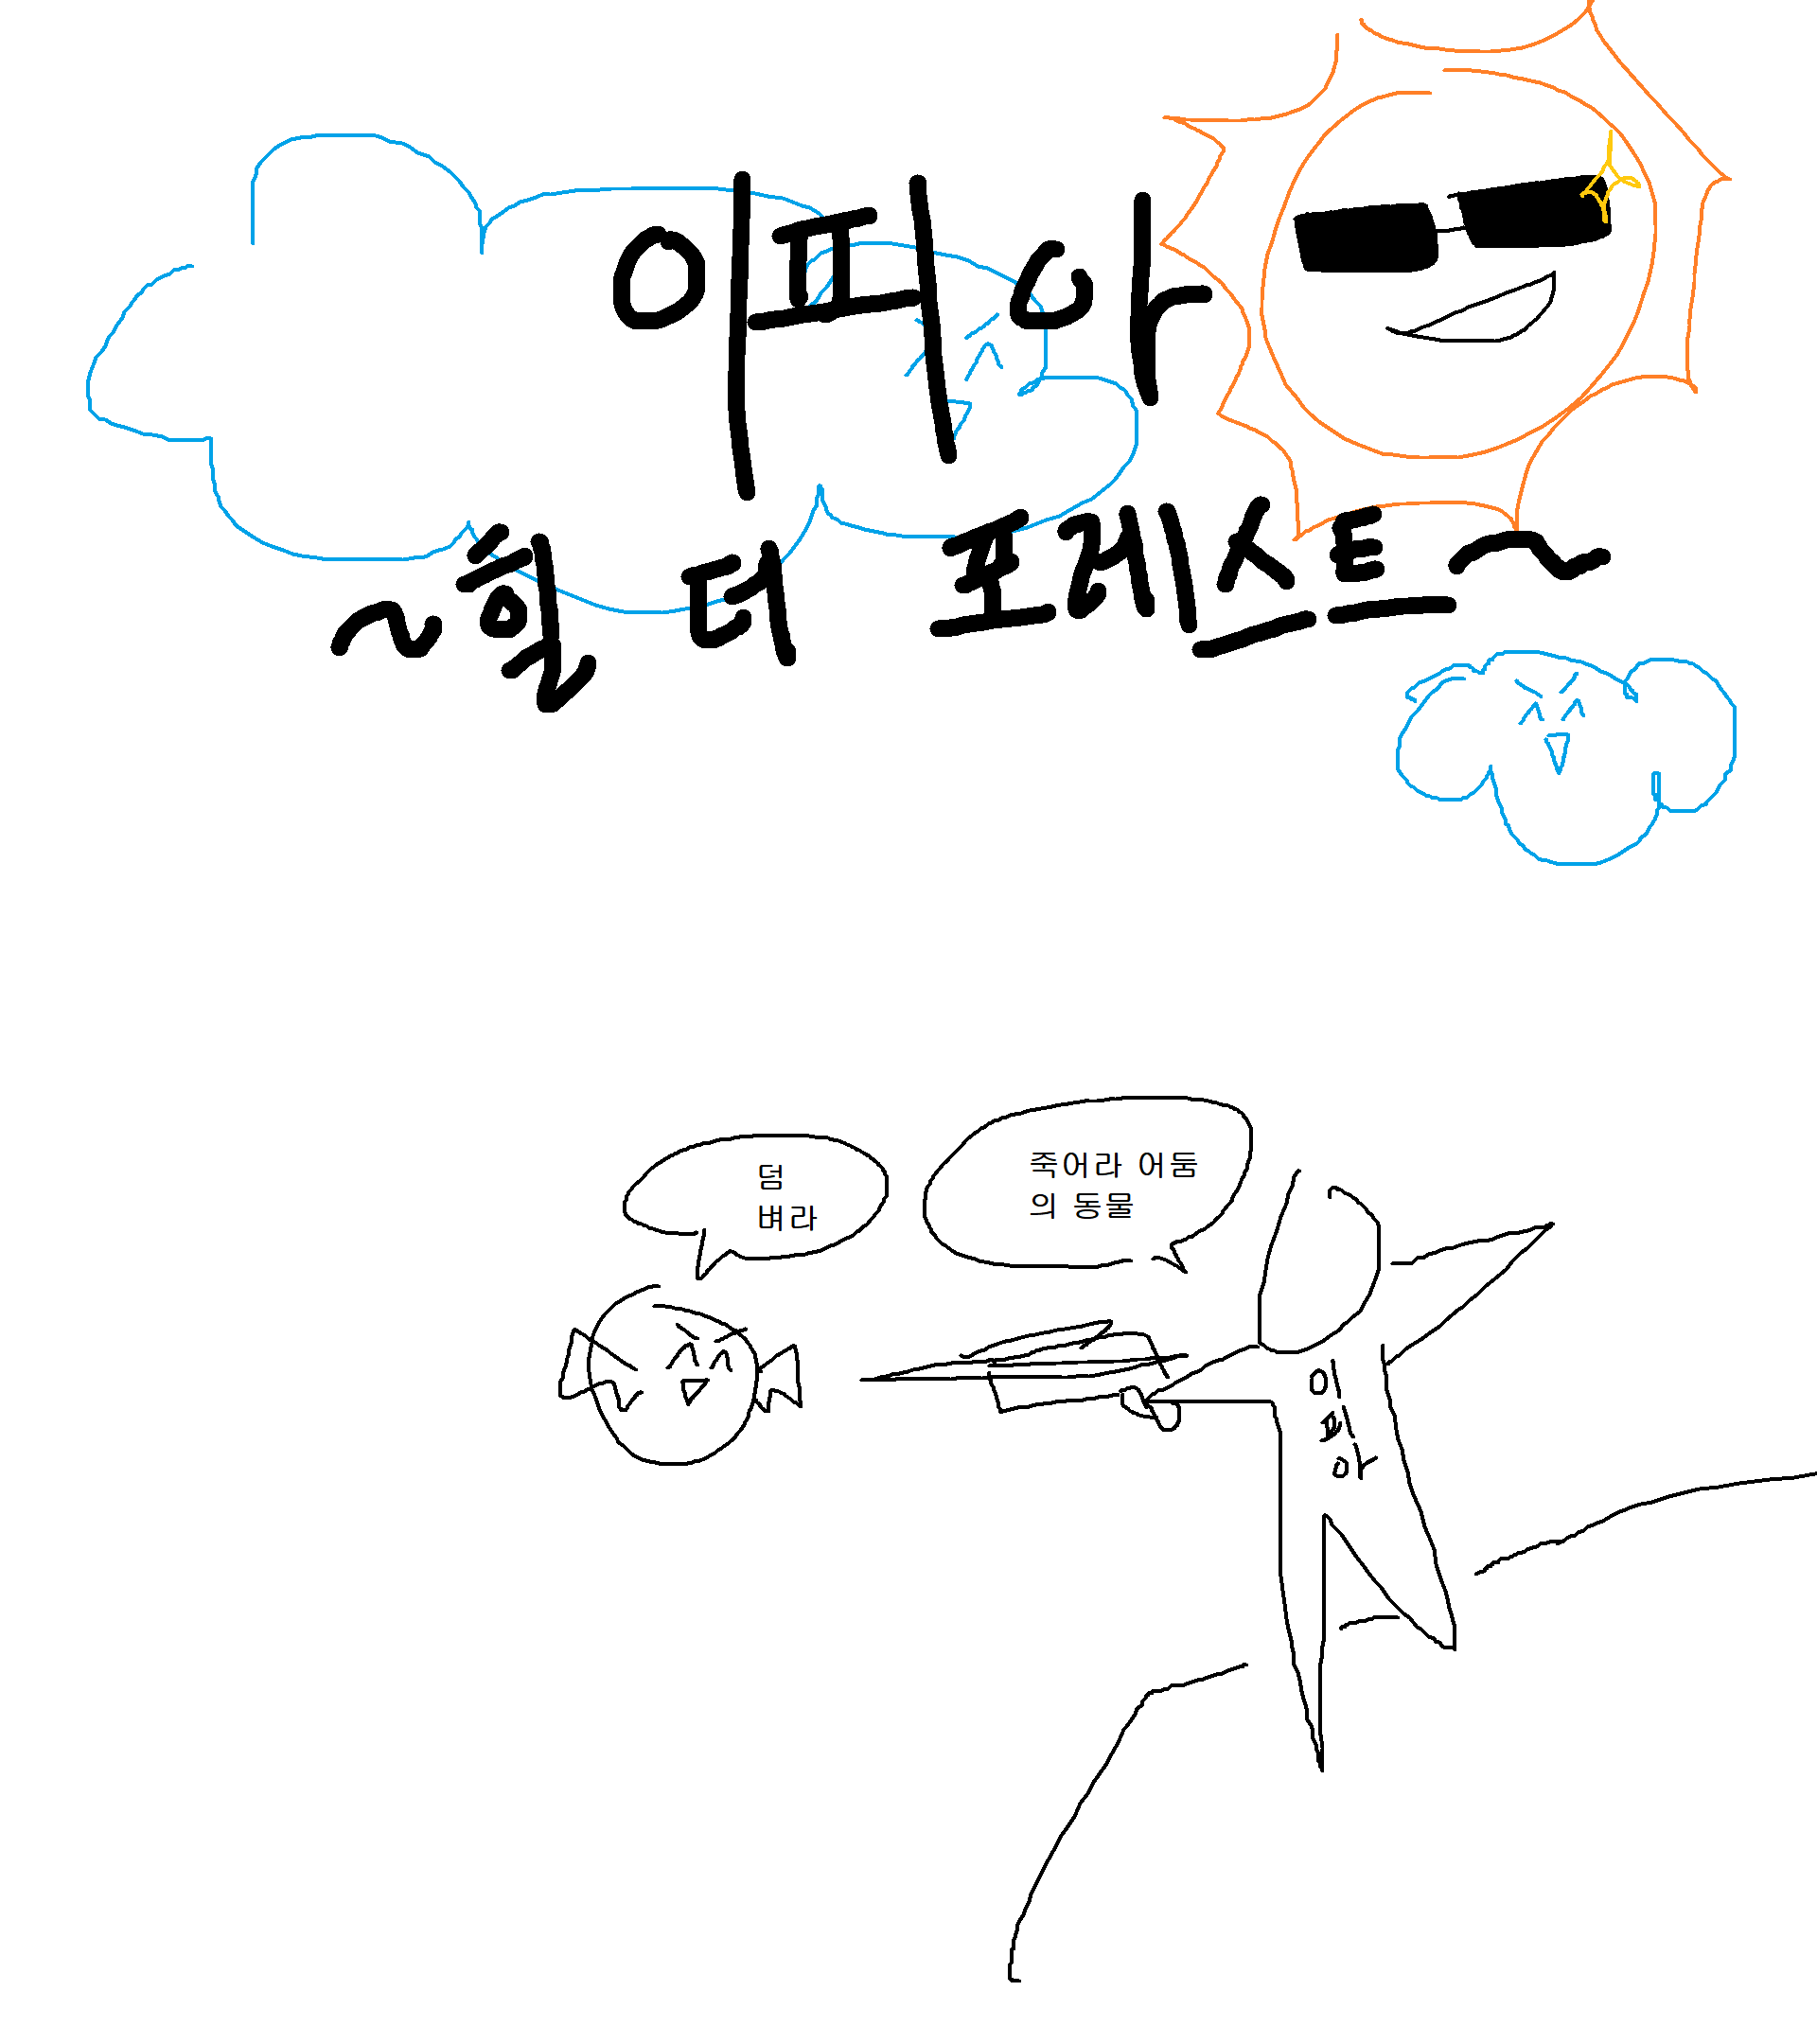 이피아
~힐 더 포레스트~
덤
벼라
죽어라 어둠
의 동물
이
피
아